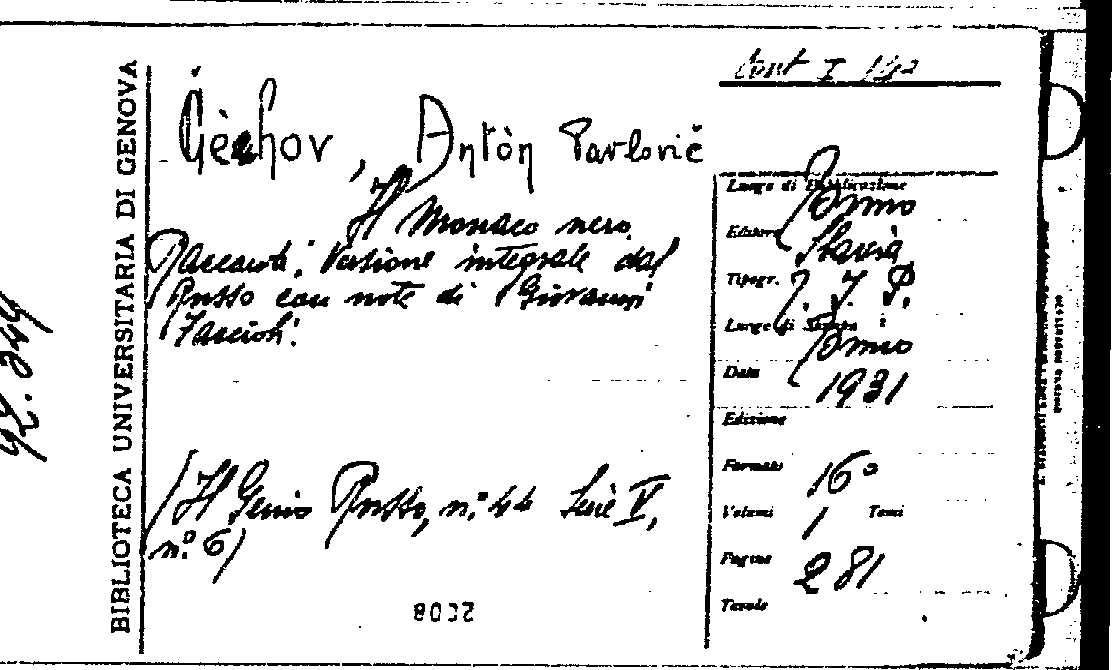 BIBLIOTECA UNIVERSITARIA DI GENOVA
Čèchov, Antòn Pavlovič
Il Monaco nero.
Racconti. Versione integrale dal
Russo con note di Giovanni
Faccioli.
(Il Genio Russo, n.º 44 Serie V,
n.º 6)
Cont I
Luogo di Pubblicazione Torino
Editore Slavia
Tipogr.
Luogo di Stampa Torino
Data 1931
Edizione
Formato 16º
Volumi 1 Tomi
Pagine 281
Tavole